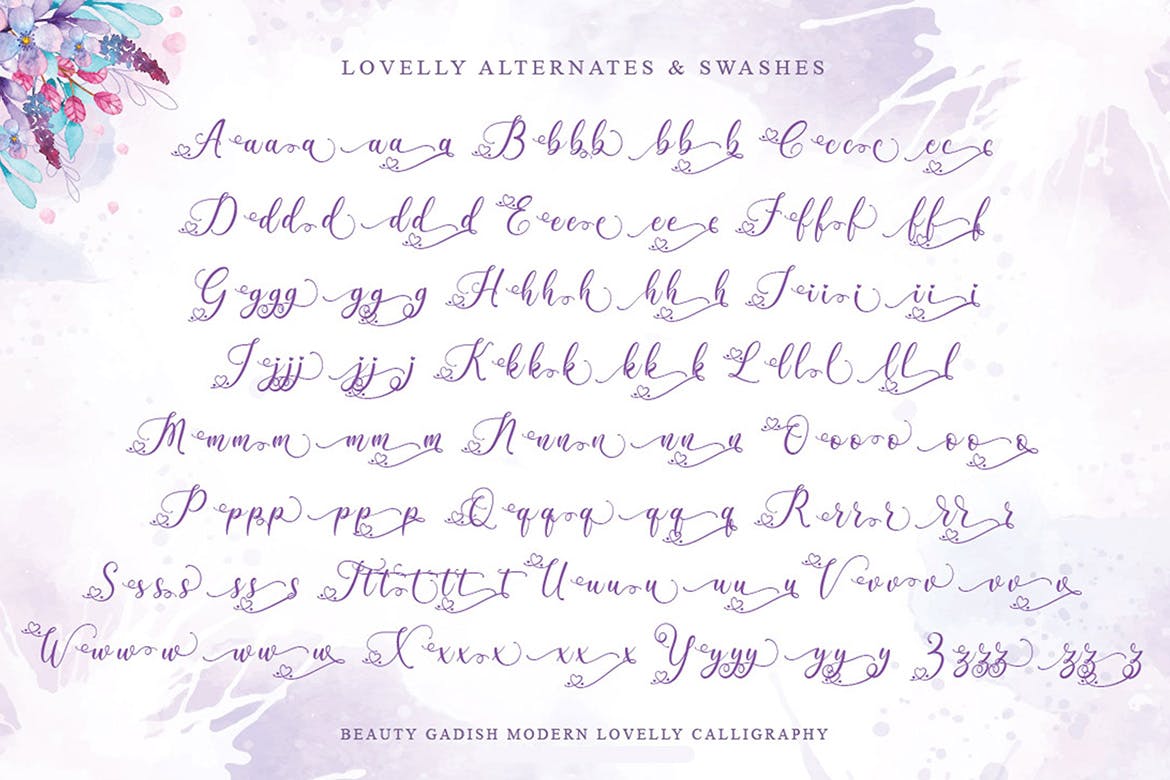 LOVELLY ALTERNATES & SWASHES
Aaaaaa aa a Bbbbb bb b Cccccc cc c
Ddddd dd d Eeeeee ee e Fffff ff f
Ggggg gg g Hhhhh hh h Iiiiii ii i
Jjjjj jj j Kkkkk kk k Lllll ll l
Mmmmm mm m Nnnnn nn n Oooooo oo o
Ppppp pp p Qqqqq qq q Rrrrrr rr r
Sssss ss s Ttttt tt t Uuuuu uu u Vvvvvv vv v
Wwwww ww w Xxxxxx xx x Yyyyy yy y Zzzzz zz z
BEAUTY GADISH MODERN LOVELLY CALLIGRAPHY